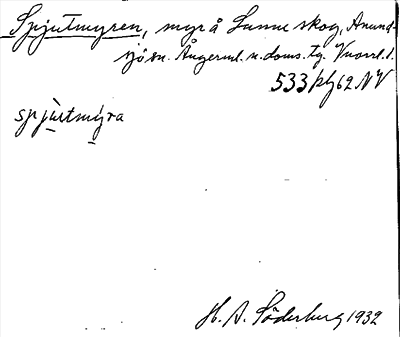 Spjutmyren, myr å Lunne skog, Anund-
sjö sn. Ångerml. n. doms. tg. Vnorrl. l.
533 kbf 62 NV
spjùtmýra
H. A. Söderberg 1932